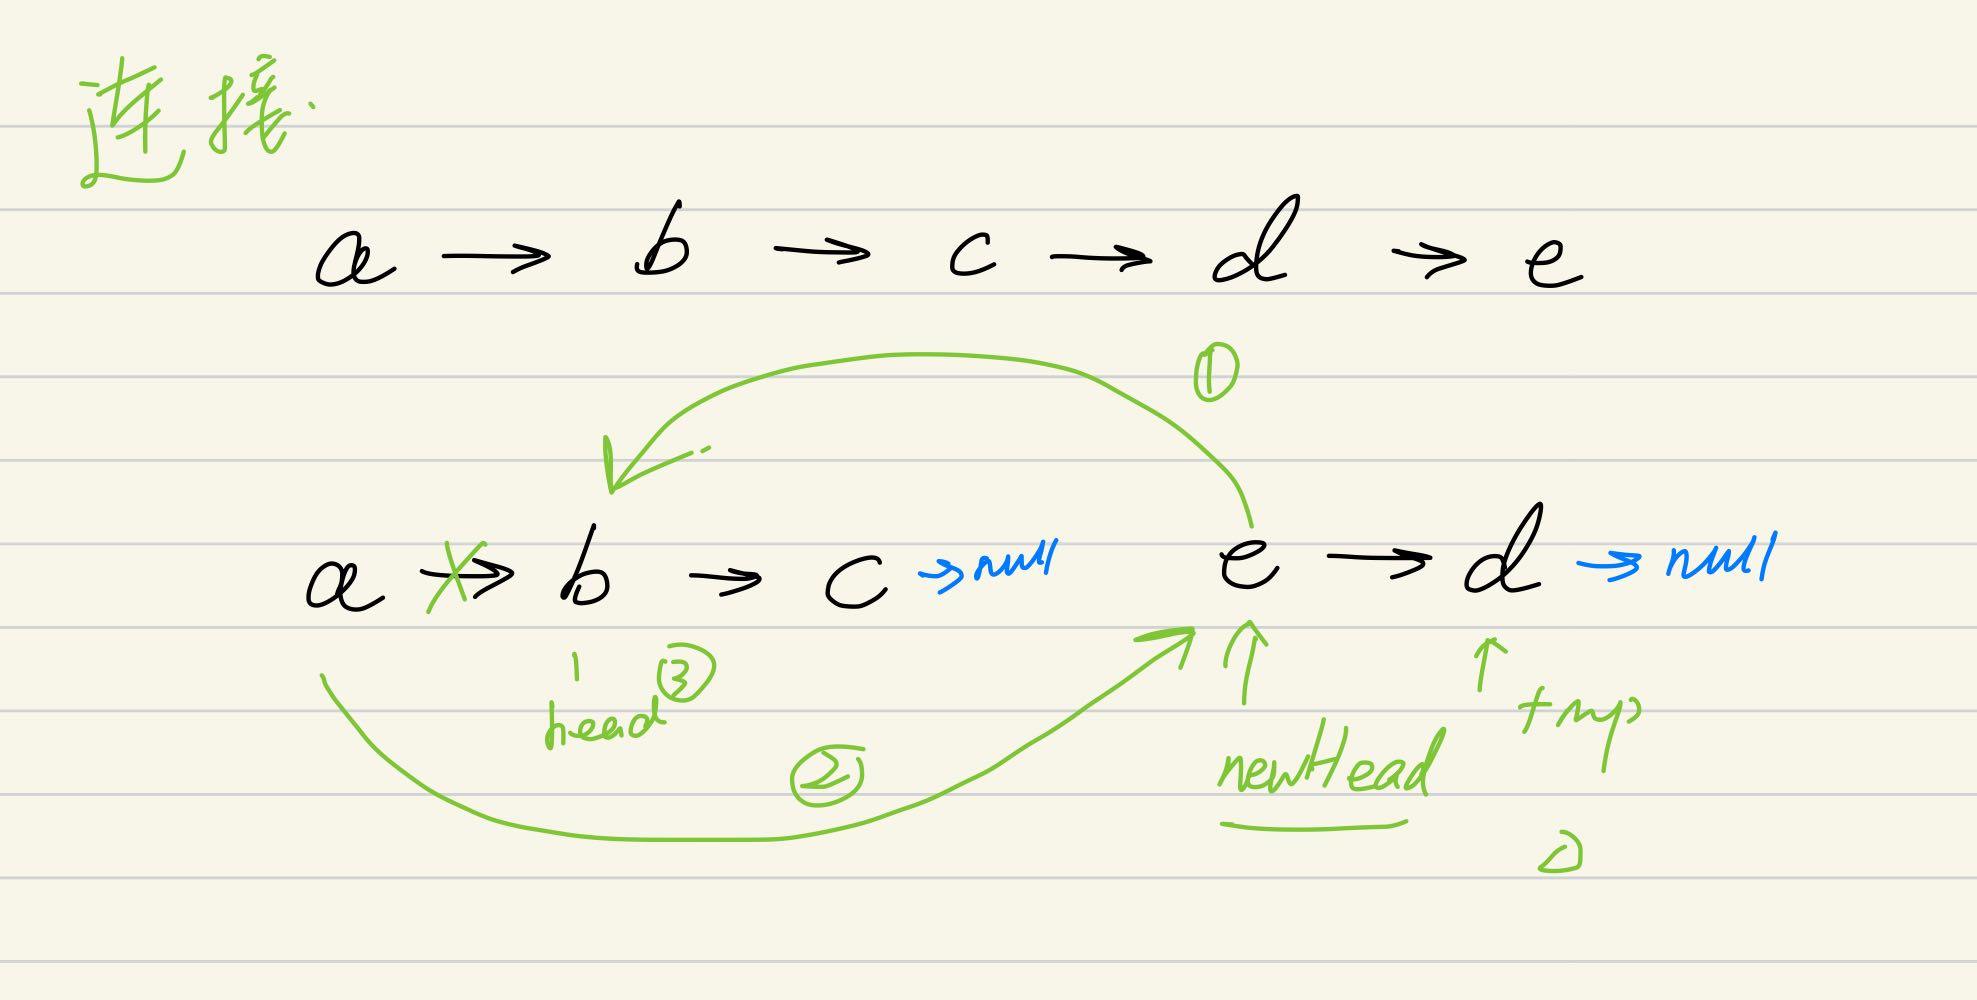 连接.
a → b → c → d → e
①
a → b → c → null e → d → null
head ③ tmp
② newHead